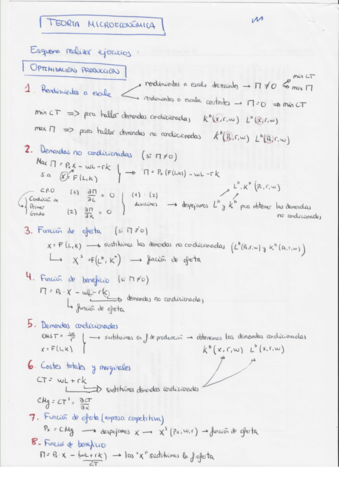 TEORIA MICROECONÓMICA
Esquema realizar ejercicios:
OPTIMIZACIÓN PRODUCCIÓN
1. Rendimientos a escala
rendimientos a escala decreciente → Π ≠ 0 → min CT
max Π
rendimientos a escala constantes → Π = 0 → min CT
min CT => para hallar demandas condicionadas K^D(x,r,w) L^D(x,r,w)
max Π => para hallar demandas no condicionadas K^D(P,r,w) L^D(P,r,w)
2. Demandas no condicionadas (si Π≠0)
Max Π = Px·x - wL - rk
→ Π = Px(F(L,K)) - wL - rk
s.a. x = F(L,K)
L^D, K^D(P,r,w)
C.P.O (1) ∂Π/∂L = 0
(2) ∂Π/∂K = 0
Condición de Primer
(1) (2)
→ despejamos L^D y K^D para obtener las demandas no condicionadas
3. Función de oferta (si Π≠0)
x = F(L,K) → sustituimos las demandas no condicionadas (L^D(P,r,w) y K^D(P,r,w))
→ X^S = F(L^D, K^D) → función de oferta
4. Función de beneficio (si Π≠0)
Π = Px·X - wL - rk
→ demandas no condicionadas
→ función de oferta
5. Demandas condicionadas
x = F(L,K)
→ sustituimos en f de producción → obtenemos las demandas condicionadas
K^D(x,r,w) L^D(x,r,w)
6. Costes totales y marginales
CT = wL + rk
→ sustituimos demandas condicionadas
CMg = CT' = ∂CT/∂x
7. Función de oferta (empresa competitiva)
Px = CMg → despejamos x → X^S(Px,w,r) → función de oferta
8. Función de beneficio
Π = Px·x - (wL + rk) → las "x" sustituimos la f oferta
CT